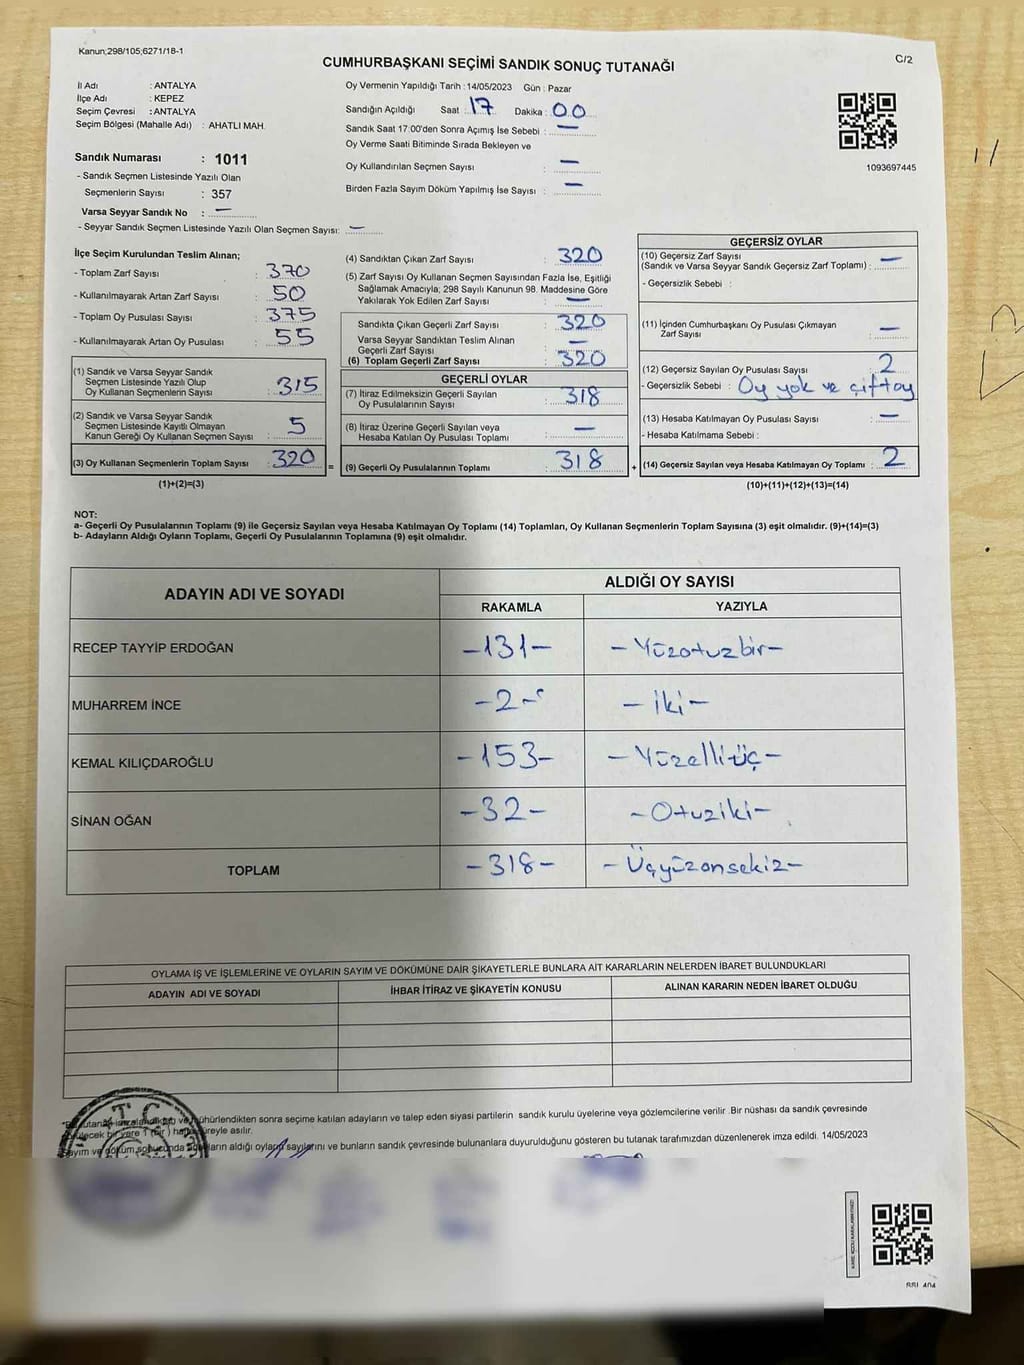 Kanun;298/105;6271/18-1
C/2
CUMHURBAŞKANI SEÇİMİ SANDIK SONUÇ TUTANAĞI
İl Adı : ANTALYA
İlçe Adı : KEPEZ
Seçim Çevresi : ANTALYA
Seçim Bölgesi (Mahalle Adı) : AHATLI MAH.
Sandık Numarası : 1011
- Sandık Seçmen Listesinde Yazılı Olan
Seçmenlerin Sayısı : 357
Varsa Seyyar Sandık No : —
- Seyyar Sandık Seçmen Listesinde Yazılı Olan Seçmen Sayısı: —
Oy Vermenin Yapıldığı Tarih : 14/05/2023 Gün : Pazar
Sandığın Açıldığı Saat : 17 Dakika : 00
Sandık Saat 17:00'den Sonra Açımış İse Sebebi : —
Oy Verme Saati Bitiminde Sırada Bekleyen ve
Oy Kullandırılan Seçmen Sayısı : —
Birden Fazla Sayım Döküm Yapılmış İse Sayısı : —
1093697445
İlçe Seçim Kurulundan Teslim Alınan;
- Toplam Zarf Sayısı : 370
- Kullanılmayarak Artan Zarf Sayısı : 50
- Toplam Oy Pusulası Sayısı : 375
- Kullanılmayarak Artan Oy Pusulası : 55
(1) Sandık ve Varsa Seyyar Sandık
Seçmen Listesinde Yazılı Olup
Oy Kullanan Seçmenlerin Sayısı : 315
(2) Sandık ve Varsa Seyyar Sandık
Seçmen Listesinde Kayıtlı Olmayan
Kanun Gereği Oy Kullanan Seçmen Sayısı : 5
(3) Oy Kullanan Seçmenlerin Toplam Sayısı : 320
(1)+(2)=(3)
(4) Sandıktan Çıkan Zarf Sayısı : 320
(5) Zarf Sayısı Oy Kullanan Seçmen Sayısından Fazla İse, Eşitliği
Sağlamak Amacıyla; 298 Sayılı Kanunun 98. Maddesine Göre
Yakılarak Yok Edilen Zarf Sayısı : —
Sandıkta Çıkan Geçerli Zarf Sayısı : 320
Varsa Seyyar Sandıktan Teslim Alınan
Geçerli Zarf Sayısı : —
(6) Toplam Geçerli Zarf Sayısı : 320
GEÇERLİ OYLAR
(7) İtiraz Edilmeksizin Geçerli Sayılan
Oy Pusulalarının Sayısı : 318
(8) İtiraz Üzerine Geçerli Sayılan veya
Hesaba Katılan Oy Pusulası Toplamı : —
= (9) Geçerli Oy Pusulalarının Toplamı : 318
GEÇERSİZ OYLAR
(10) Geçersiz Zarf Sayısı
(Sandık ve Varsa Seyyar Sandık Geçersiz Zarf Toplamı) : —
- Geçersizlik Sebebi :
(11) İçinden Cumhurbaşkanı Oy Pusulası Çıkmayan
Zarf Sayısı : —
(12) Geçersiz Sayılan Oy Pusulası Sayısı : 2
- Geçersizlik Sebebi : Oy yok ve çiftoy
(13) Hesaba Katılmayan Oy Pusulası Sayısı : —
- Hesaba Katılmama Sebebi :
+ (14) Geçersiz Sayılan veya Hesaba Katılmayan Oy Toplamı : 2
(10)+(11)+(12)+(13)=(14)
NOT:
a- Geçerli Oy Pusulalarının Toplamı (9) ile Geçersiz Sayılan veya Hesaba Katılmayan Oy Toplamı (14) Toplamları, Oy Kullanan Seçmenlerin Toplam Sayısına (3) eşit olmalıdır. (9)+(14)=(3)
b- Adayların Aldığı Oyların Toplamı, Geçerli Oy Pusulalarının Toplamına (9) eşit olmalıdır.
ADAYIN ADI VE SOYADI
ALDIĞI OY SAYISI
RAKAMLA YAZIYLA
RECEP TAYYİP ERDOĞAN -131- -Yüzotuzbir-
MUHARREM İNCE -2- -iki-
KEMAL KILIÇDAROĞLU -153- -Yüzelliüç-
SİNAN OĞAN -32- -Otuziki-
TOPLAM -318- -Üçyüzonsekiz-
OYLAMA İŞ VE İŞLEMLERİNE VE OYLARIN SAYIM VE DÖKÜMÜNE DAİR ŞİKAYETLERLE BUNLARA AİT KARARLARIN NELERDEN İBARET BULUNDUKLARI
ADAYIN ADI VE SOYADI İHBAR İTİRAZ VE ŞİKAYETİN KONUSU ALINAN KARARIN NEDEN İBARET OLDUĞU
T.C.
ve mühürlendikten sonra seçime katılan adayların ve talep eden siyasi partilerin sandık kurulu üyelerine veya gözlemcilerine verilir .Bir nüshası da sandık çevresinde
bir yere 1 (bir) süreyle asılır.
Sayım ve döküm sonucunda adayların aldığı oyların sayılarını ve bunların sandık çevresinde bulunanlara duyurulduğunu gösteren bu tutanak tarafımızdan düzenlenerek imza edildi. 14/05/2023